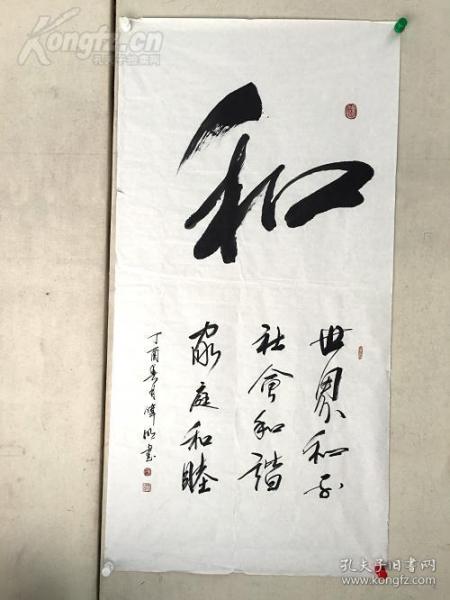 Kongfz.cn
孔夫子拍卖网
和
世界和平
社会和谐
家庭和睦
丁酉春月
书
孔夫子旧书网
www.kongfz.com